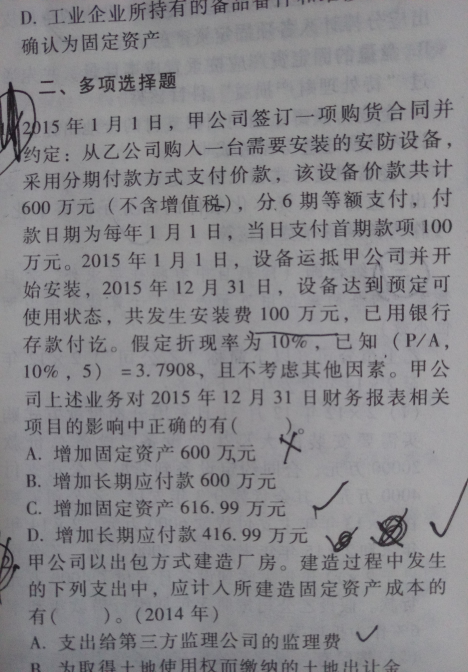 D. 工业企业所持有的备品备件和
确认为固定资产
二、多项选择题
2015 年 1 月 1 日，甲公司签订一项购货合同并
约定：从乙公司购入一台需要安装的安防设备，
采用分期付款方式支付价款，该设备价款共计
600 万元（不含增值税），分 6 期等额支付，付
款日期为每年 1 月 1 日，当日支付首期款项 100
万元。2015 年 1 月 1 日，设备运抵甲公司并开
始安装，2015 年 12 月 31 日，设备达到预定可
使用状态，共发生安装费 100 万元，已用银行
存款付讫。假定折现率为 10%，已知（P/A，
10%，5）=3.7908，且不考虑其他因素。甲公
司上述业务对 2015 年 12 月 31 日财务报表相关
项目的影响中正确的有(　　)。
A. 增加固定资产 600 万元
B. 增加长期应付款 600 万元
C. 增加固定资产 616.99 万元
D. 增加长期应付款 416.99 万元
甲公司以出包方式建造厂房。建造过程中发生
的下列支出中，应计入所建造固定资产成本的
有(　　)。(2014 年)
A. 支出给第三方监理公司的监理费
B. 为取得土地使用权而缴纳的土地出让金